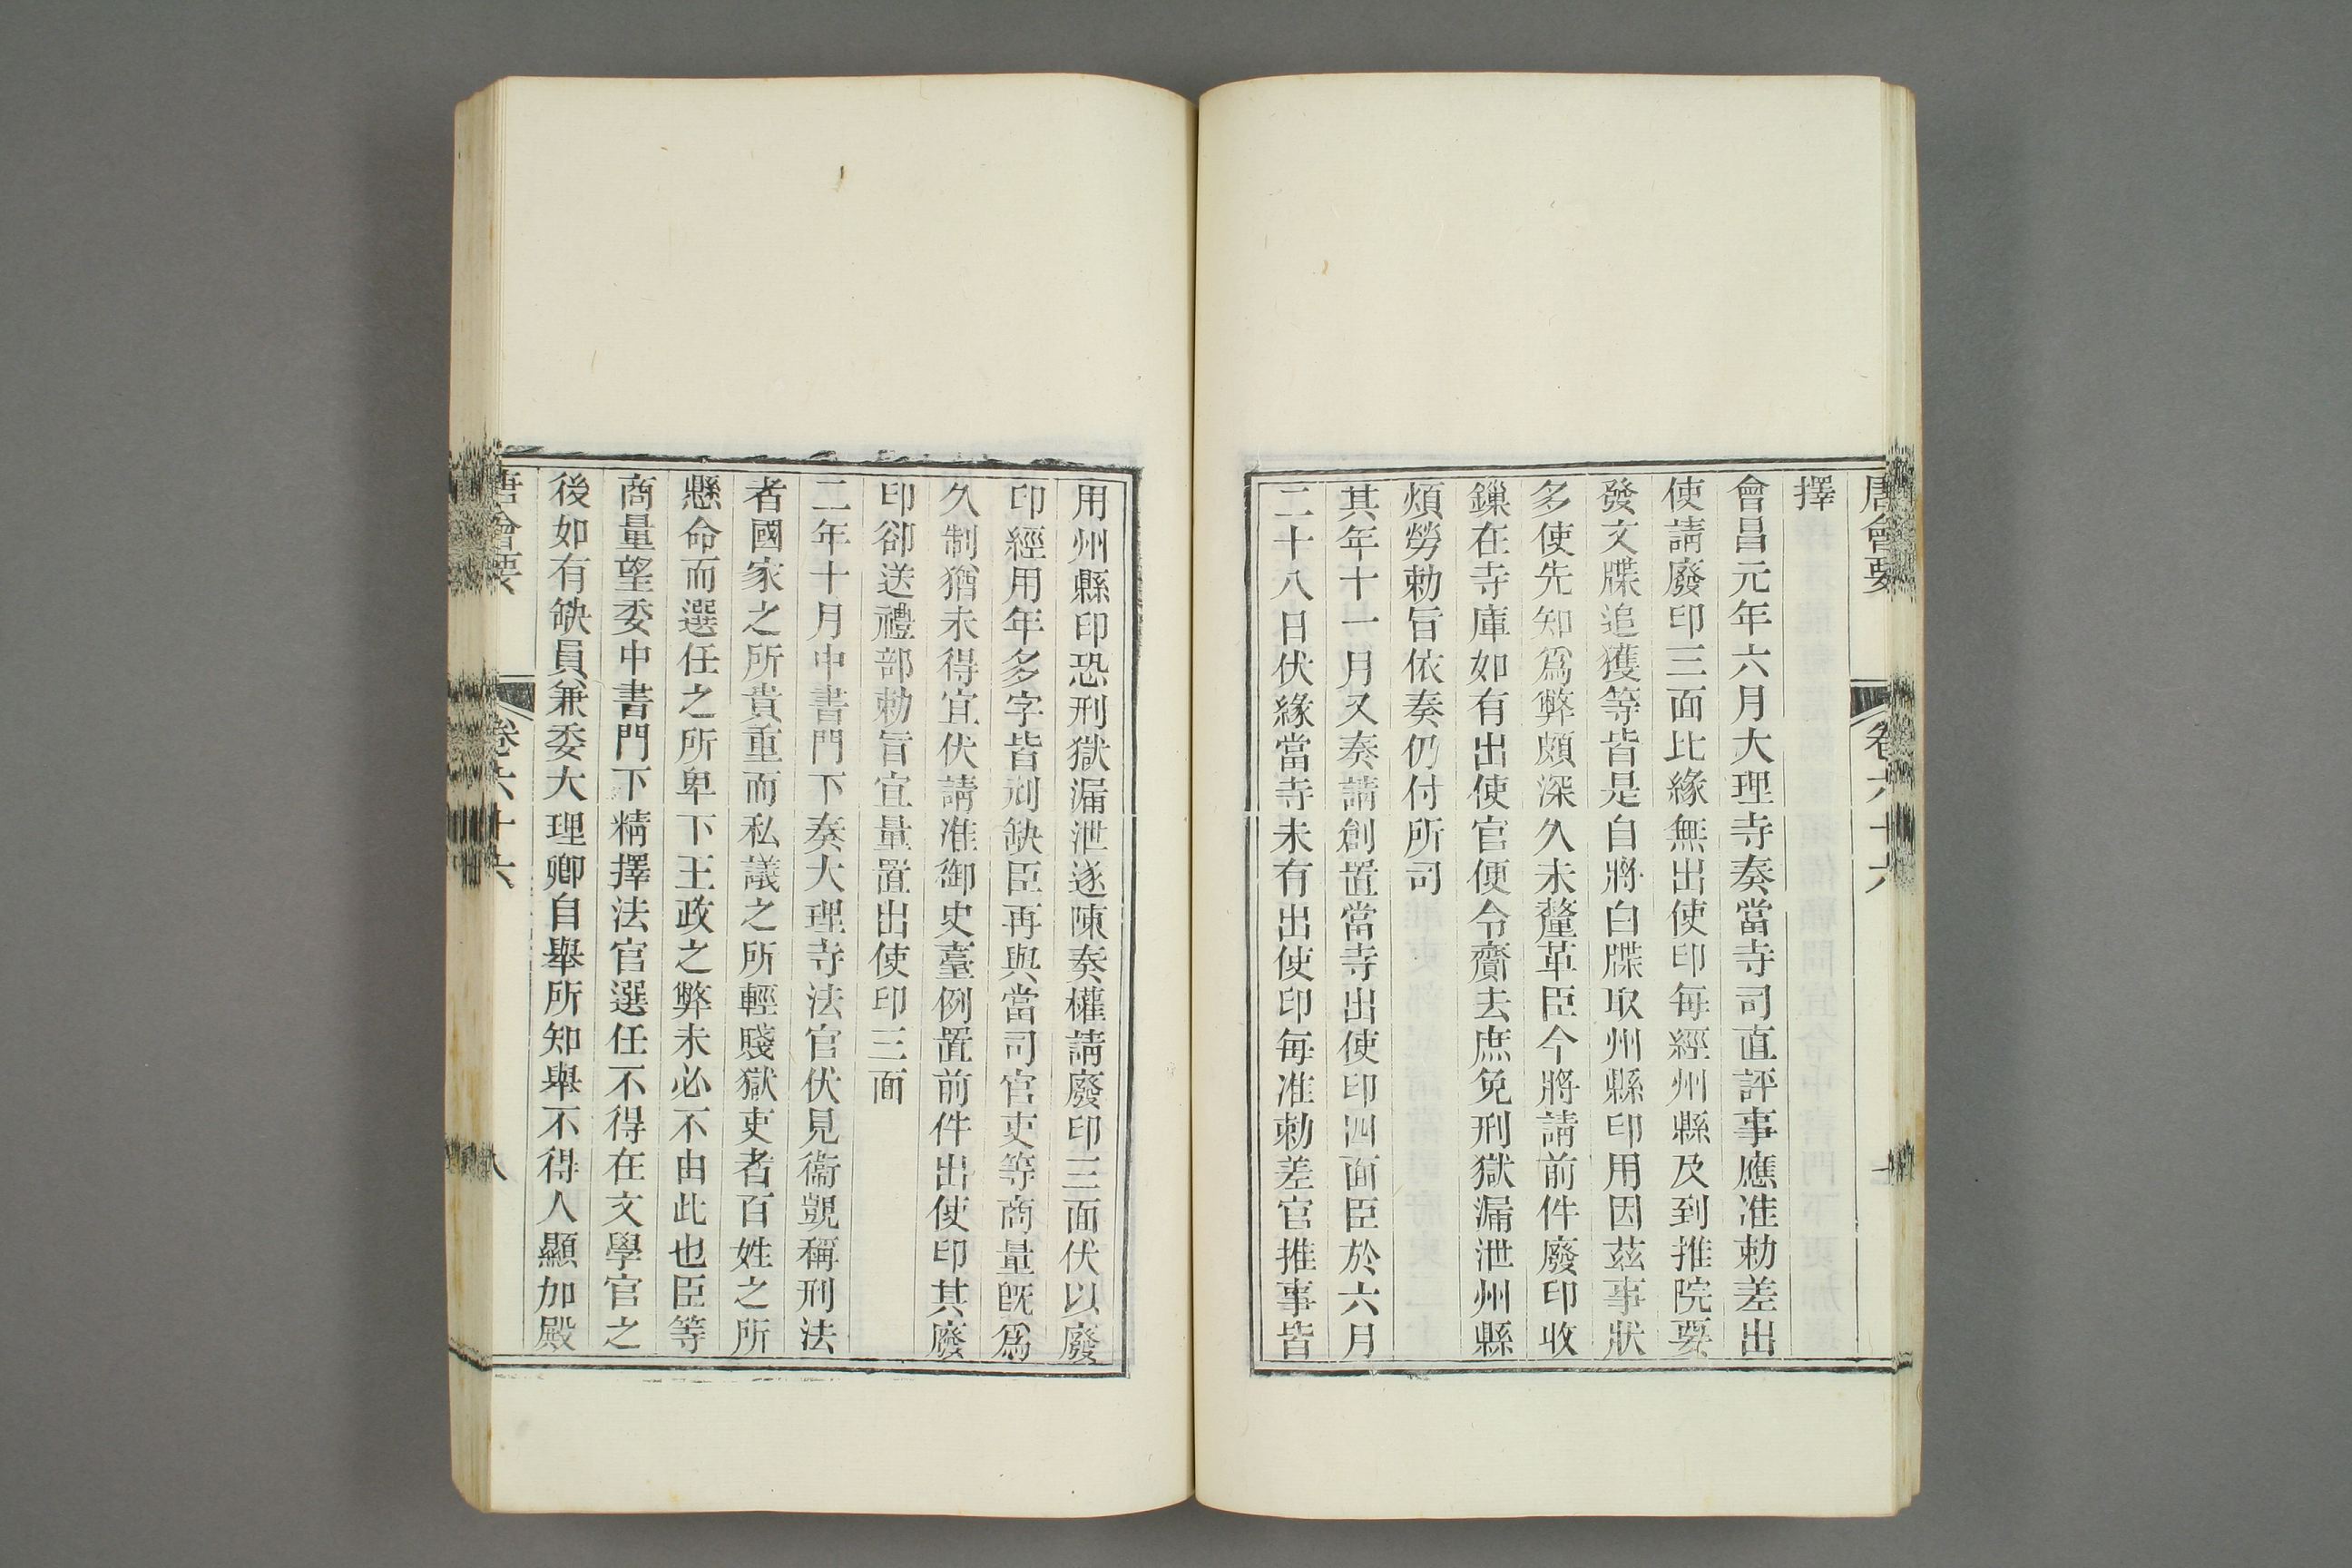 唐會要 卷六十六
擇
會昌元年六月大理寺奏當寺司直評事應准勅差出
使請廢印三面比緣無出使印每經州縣及到推院要
發文牒追獲等皆是自將白牒取州縣印用因茲事狀
多使先知爲弊頗深久未釐革臣今將請前件廢印收
鏁在寺庫如有出使官便令齎去庶免刑獄漏泄州縣
煩勞勅旨依奏仍付所司
其年十一月又奏請創置當寺出使印四面臣於六月
二十八日伏緣當寺未有出使印每准勅差官推事皆
用州縣印恐刑獄漏泄遂陳奏權請廢印三面伏以廢
印經用年多字皆刓缺臣再與當司官吏等商量旣爲
久制猶未得宜伏請准御史臺例置前件出使印其廢
印卻送禮部勅旨宜量置出使印三面
二年十月中書門下奏大理寺法官伏見衞覬稱刑法
者國家之所貴重而私議之所輕賤獄吏者百姓之所
懸命而選任之所卑下王政之弊未必不由此也臣等
商量望委中書門下精擇法官選任不得在文學官之
後如有缺員兼委大理卿自舉所知舉不得人顯加殿
唐會要 卷六十六 八